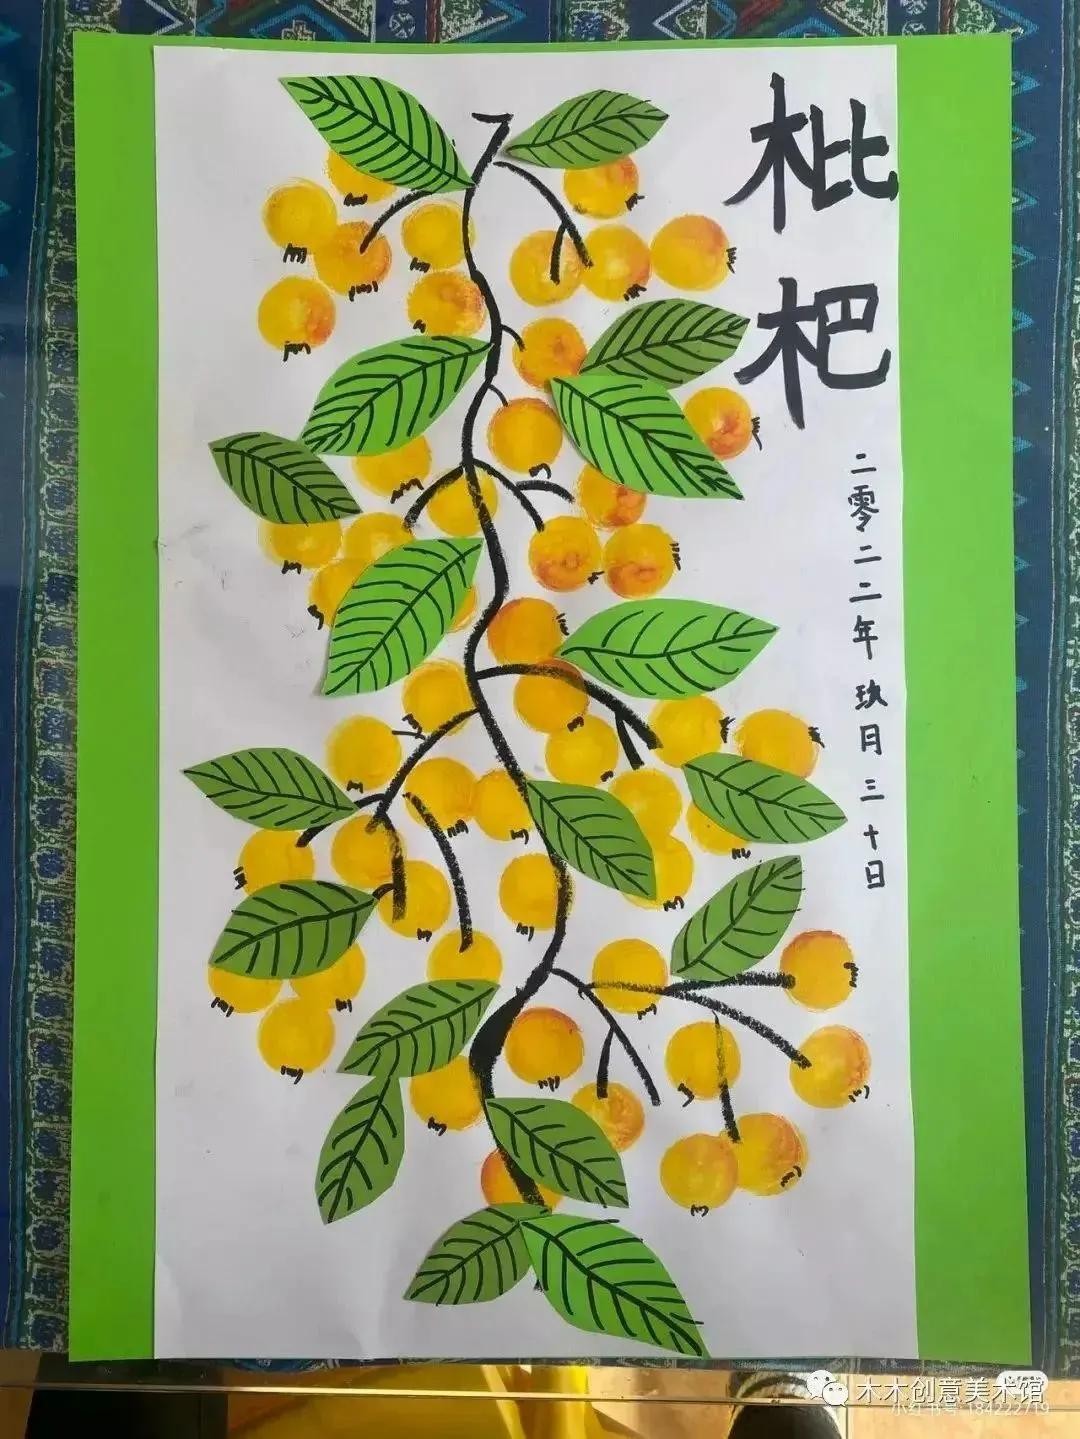 枇杷
二零二二年玖月三十日
木木创意美术馆
小红书号 184222719